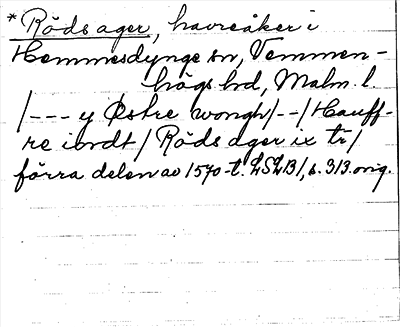 *Rödsager, havreåker i
Hemmesdynge sn, Vemmen-
högs hd, Malm. l.
/--- y Østre wongh/--/Hauff-
re iordt/Rödsager ix tr/
förra delen av 1570-t. LSLB1, s. 313. orig.